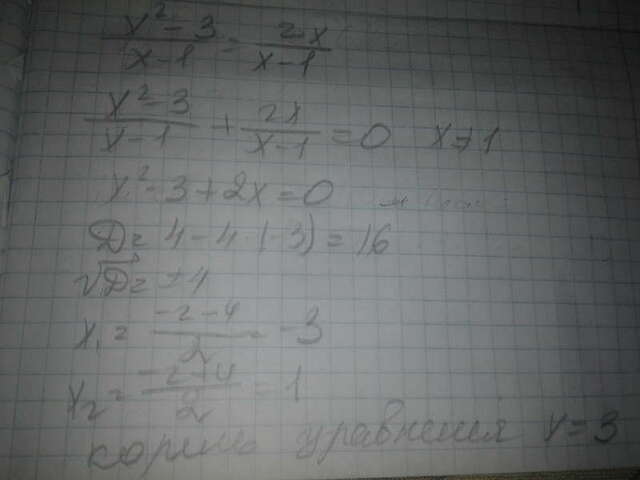 x² - 3 / x - 1 = 2x / x - 1
x² - 3 / x - 1 + 2x / x - 1 = 0 x ≠ 1
x² - 3 + 2x = 0
D = 4 - 4 · (-3) = 16
√D = ±4
x₁ = -2 - 4 / 2 = -3
x₂ = -2 + 4 / 2 = 1
корень уравнения x = 3